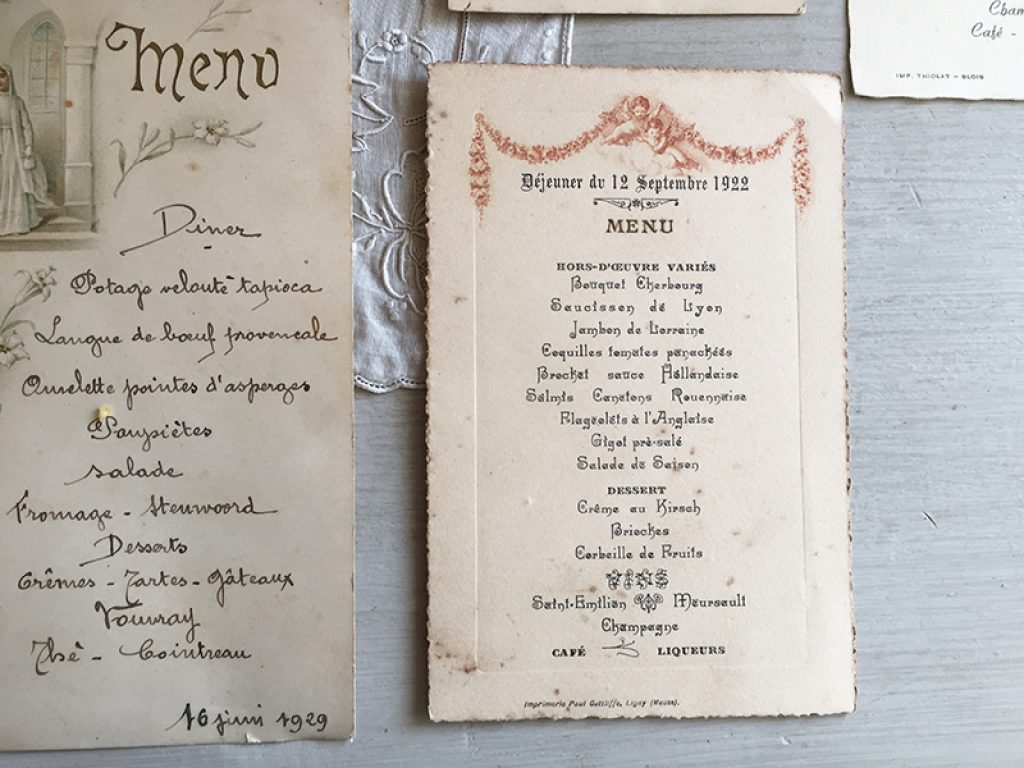 Menu
Diner
Potage velouté tapioca
Langue de bœuf provencale
Omelette pointes d'asperges
Paupiètes
salade
Fromage - Steuwoord
Desserts
Crêmes - Tartes - Gâteaux
Vouvray
Thé - Cointreau
16 juin 1929
Déjeuner du 12 Septembre 1922
MENU
HORS-D'ŒUVRE VARIÉS
Bouquet Cherbourg
Saucisson de Lyon
Jambon de Lorraine
Coquilles tomates panachées
Brochet sauce Hollandaise
Salmis Canetons Rouennaise
Flageolets à l'Anglaise
Gigot pré-salé
Salade de Saison
DESSERT
Crême au Kirsch
Brioches
Corbeille de Fruits
VINS
Saint-Emilion Meursault
Champagne
CAFÉ LIQUEURS
Imprimerie Paul Ligny (Meuse).
Cham
Café -
IMP. THIOLAT - BLOIS